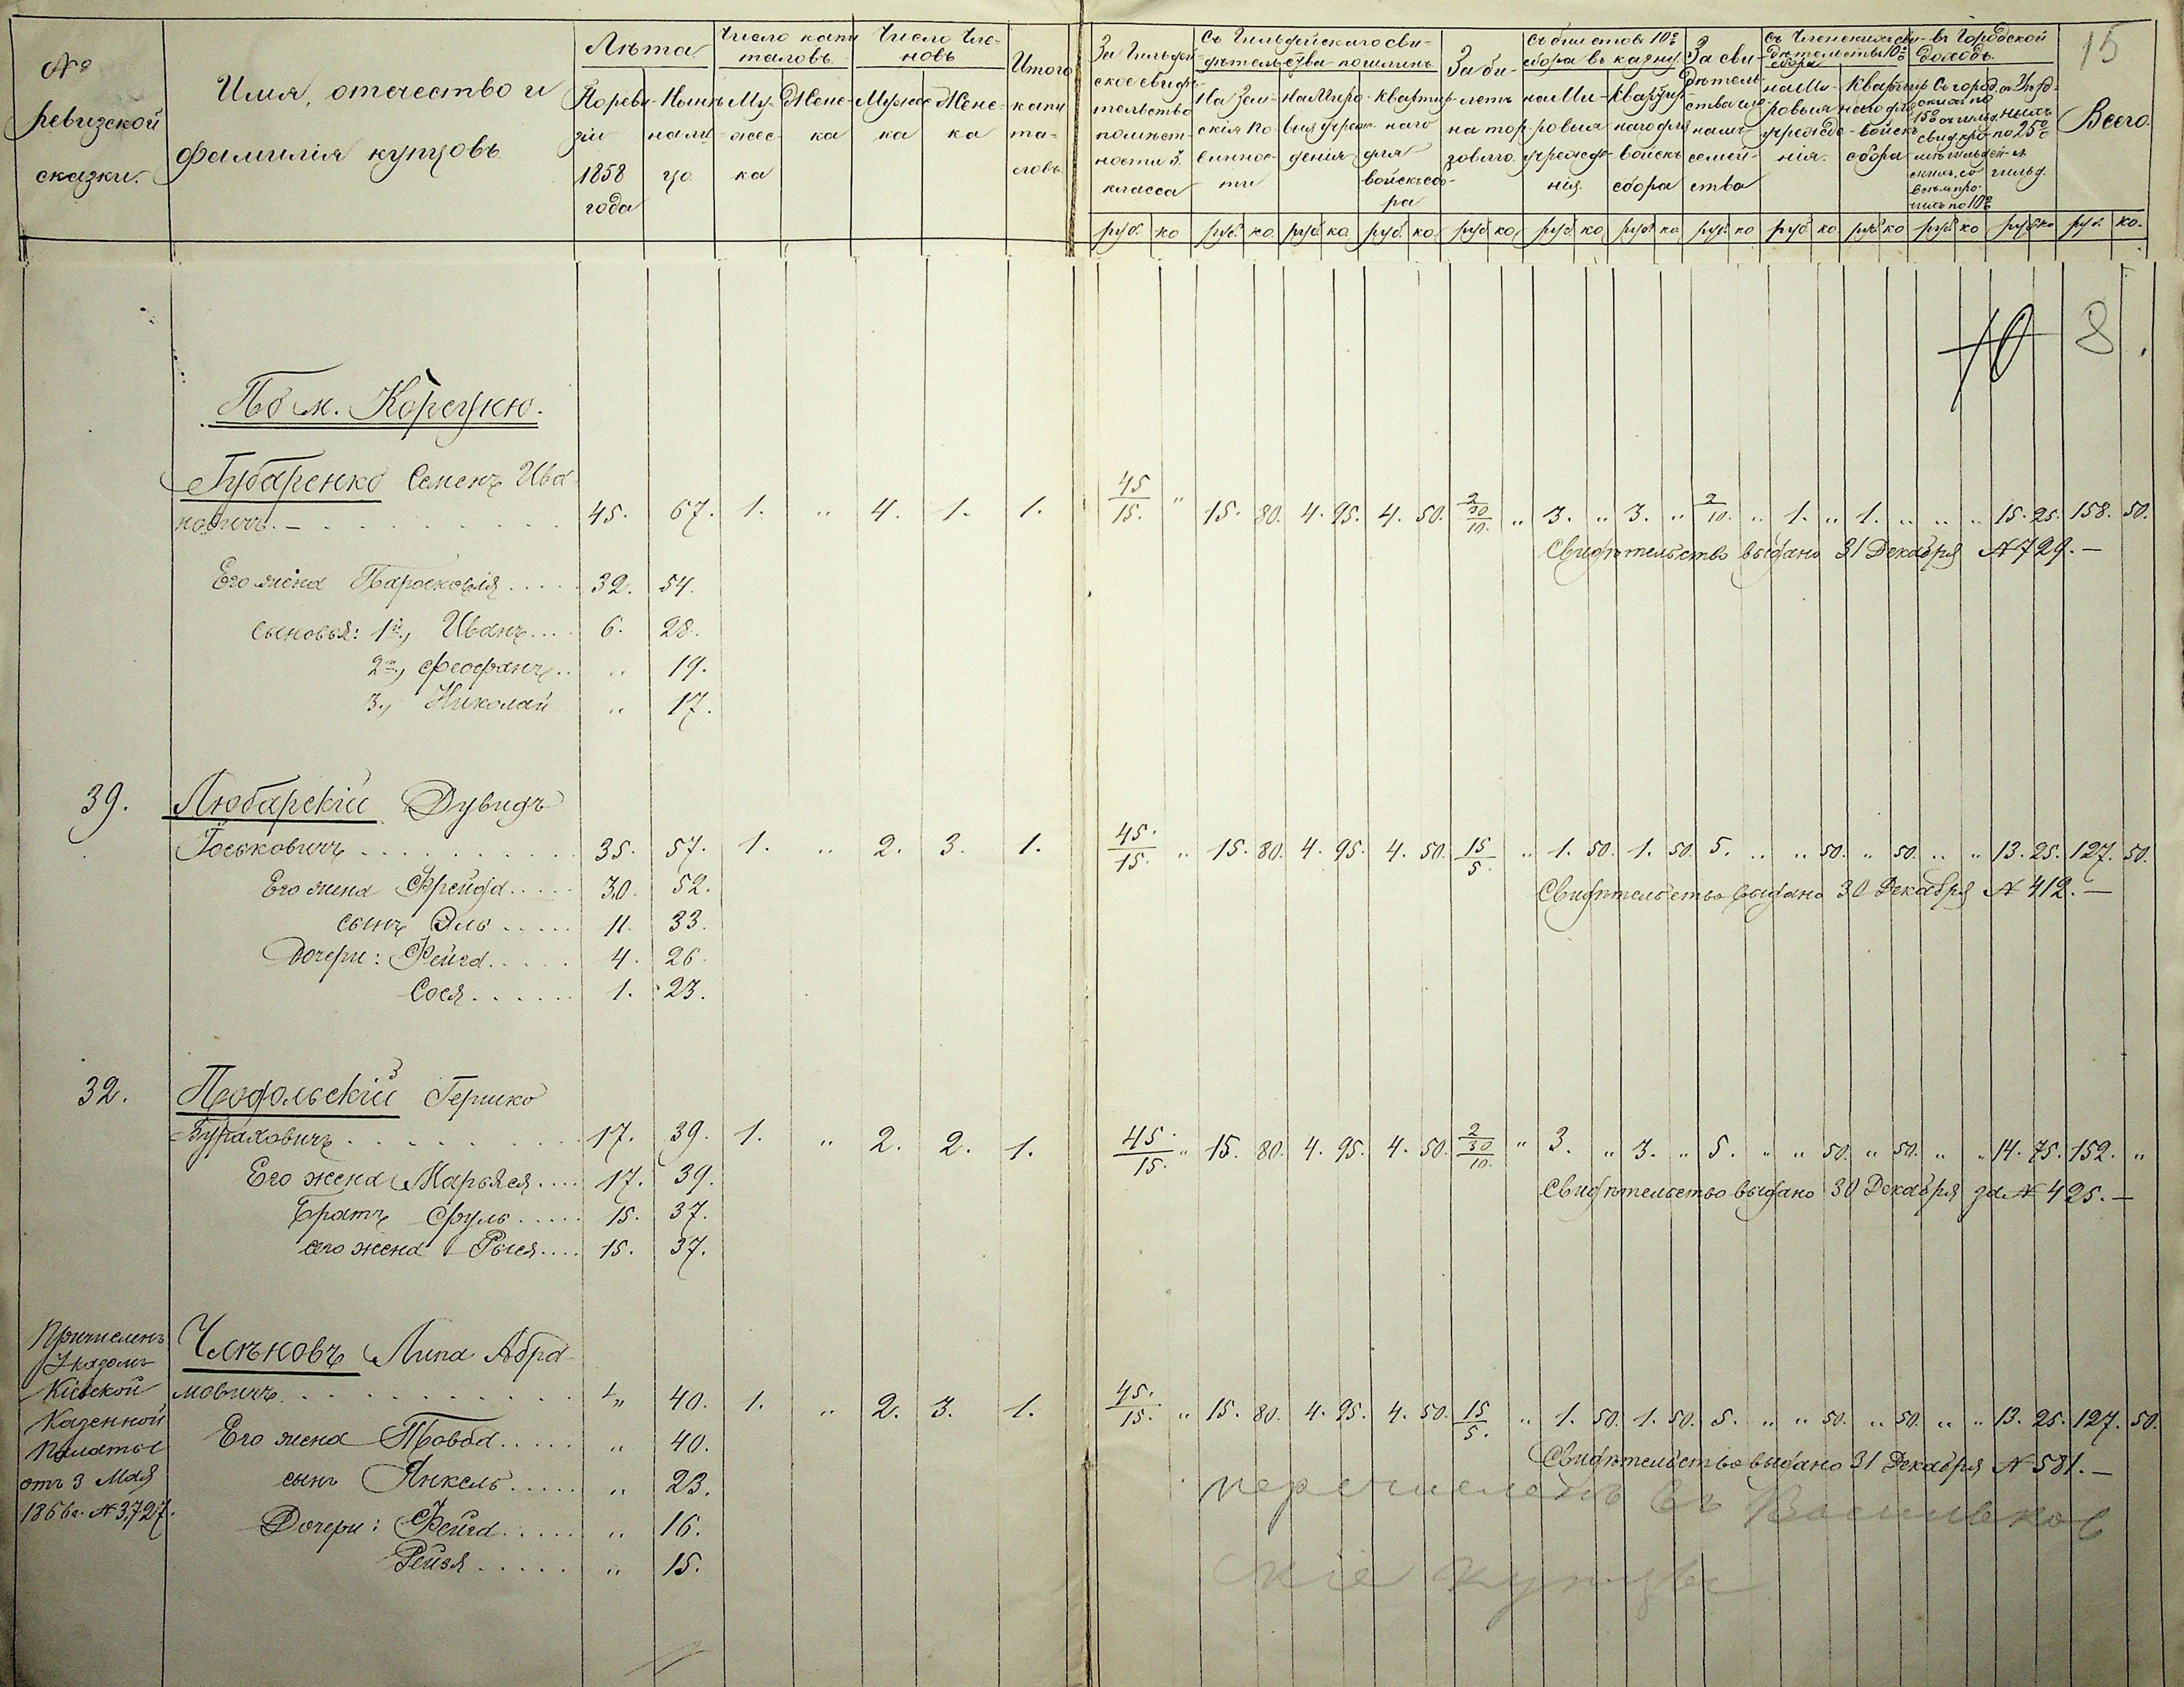 № ревизской сказки.
Имя, отчество и фамилія купцовъ
Лѣта
По реви- зіи 1858 года
Нынѣ
Число капи таловъ
Му- жес- ка
Жене- ка
Число Чле- новъ
Мужес ка
Жене- ка
Итого капи та- ловъ
За Гильдей- ское свидѣ- тельство
класса
Съ Гильдейскаго сви- дѣтельства пошлинъ
На Зем- скія по- виннос- ти
На Миро- выя учреж- денія
Квартир- наго для войскъ сбо- ра
За би- летъ на тор- говлю
Съ билетовъ 10% сбора въ казну
на Ми- ровыя учрежде- нія
Квартир- наго для войскъ сбора
За сви- дѣтель- ства
семей- ства
на Ми- ровыя учрежде- нія
Квартир наго для войскъ сбора
въ Городской доходъ.
Всего
15
руб. ко руб. ко. руб ко руб. ко. руб ко руб ко руб ко руб ко руб ко руб ко руб ко руб ко руб. ко.
10 8.
По м. Корсуню.
Губаренко Семенъ Ива-
новичъ. — 45. 67. 1. „ 4. 1. 1. 45/15. „ 15. 80. 4. 95. 4. 50. 2/30/10. „ 3. „ 3. „ 2/10. „ 1. „ 1. „ „ „ 15. 25. 158. 50.
Свидѣтельство выдано 31 Декабря № 729. —
Его жена Парасковія 32. 54.
сыновья: 1й, Иванъ 6. 28.
2й, Феофанъ „ 19.
3, Николай „ 17.
39. Любарскій Дувидъ
Іоськовичъ 35. 57. 1. „ 2. 3. 1. 45./15. „ 15. 80. 4. 95. 4. 50. 15/5. „ 1. 50. 1. 50. 5. „ „ 50. „ 50. „ „ 13. 25. 127. 50.
Свидѣтельство выдано 30 Декабря № 412. —
Его жена Фрейда 30. 52.
сынъ Эль 11. 33.
Дочери: Фейга 4. 26.
Сося 1. 23.
32. Подольскій Гершко
Бураховичъ 17. 39. 1. „ 2. 2. 1. 45./15. „ 15. 80. 4. 95. 4. 50. 2/30/10. „ 3. „ 3. „ 5. „ „ 50. „ 50. „ „ 14. 75. 152. „
Свидѣтельство выдано 30 Декабря за № 425. —
Его жена Марьяся 17. 39.
Братъ Сруль 15. 37.
его жена Рыся 15. 37.
Причисленъ
Указомъ
Кіевской
Казенной
Палаты
отъ 3 Мая
1866г. № 3,727.
Чсѣновъ Липа Абра-
мовичъ „ 40. 1. „ 2. 3. 1. 45./15. „ 15. 80. 4. 95. 4. 50. 15/5. „ 1. 50. 1. 50. 5. „ „ 50. „ 50. „ „ 13. 25. 127. 50.
Свидѣтельство выдано 31 Декабря № 581. —
Его жена Товба „ 40.
сынъ Янкель „ 23.
Дочери: Фейга „ 16.
Рейзя „ 15.
перечисленъ въ Васильков
скіе купцы